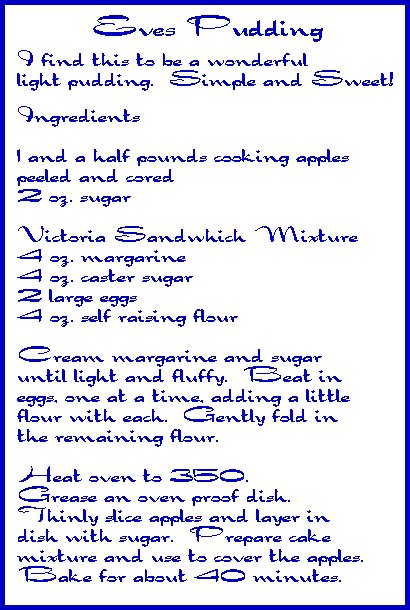 Eves Pudding
I find this to be a wonderful
light pudding. Simple and Sweet!
Ingredients
1 and a half pounds cooking apples
peeled and cored
2 oz. sugar
Victoria Sandwhich Mixture
4 oz. margarine
4 oz. caster sugar
2 large eggs
4 oz. self raising flour
Cream margarine and sugar
until light and fluffy. Beat in
eggs, one at a time, adding a little
flour with each. Gently fold in
the remaining flour.
Heat oven to 350.
Grease an oven proof dish.
Thinly slice apples and layer in
dish with sugar. Prepare cake
mixture and use to cover the apples.
Bake for about 40 minutes.